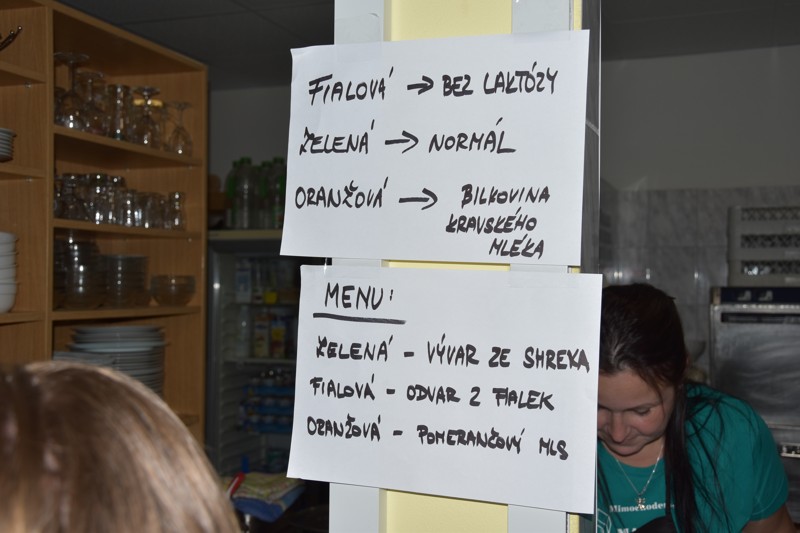 FIALOVÁ → BEZ LAKTÓZY
ZELENÁ → NORMÁL
ORANŽOVÁ → BILKOVINA
KRAVSKÉHO
MLÉKA
MENU:
ZELENÁ - VÝVAR ZE SHREKA
FIALOVÁ - ODVAR Z FIALEK
ORANŽOVÁ - POMERANČOVÝ MLS
Mimochodem